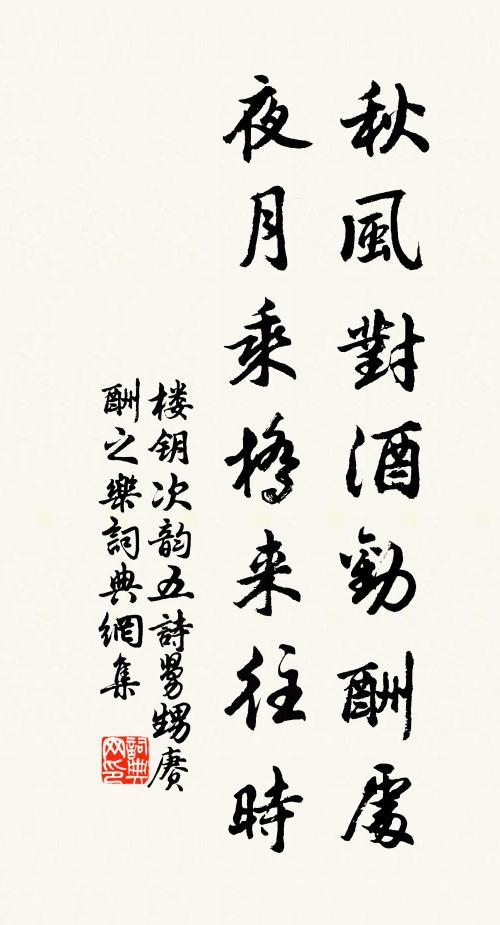 秋風對酒勸酬處
夜月乘橋来往時
楼钥次韵五詩舅甥赓
酬之樂詞典網集
詞典
网印